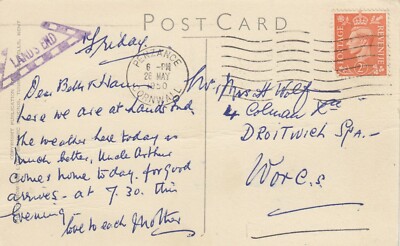 POST CARD
LANDS END
Friday
PENZANCE
6 - PM
26 MAY
1950
CORNWALL
POSTAGE
REVENUE
Dear Bob & Ham
here we are at Lands End
the weather here today is
much better, Uncle Arthur
comes home today. for good
arrives - at 7.30. this
Evening -
love to each Mother
Mr. Mrs H Wolf
4 Colman
DROITWICH SPA -
Worcs.